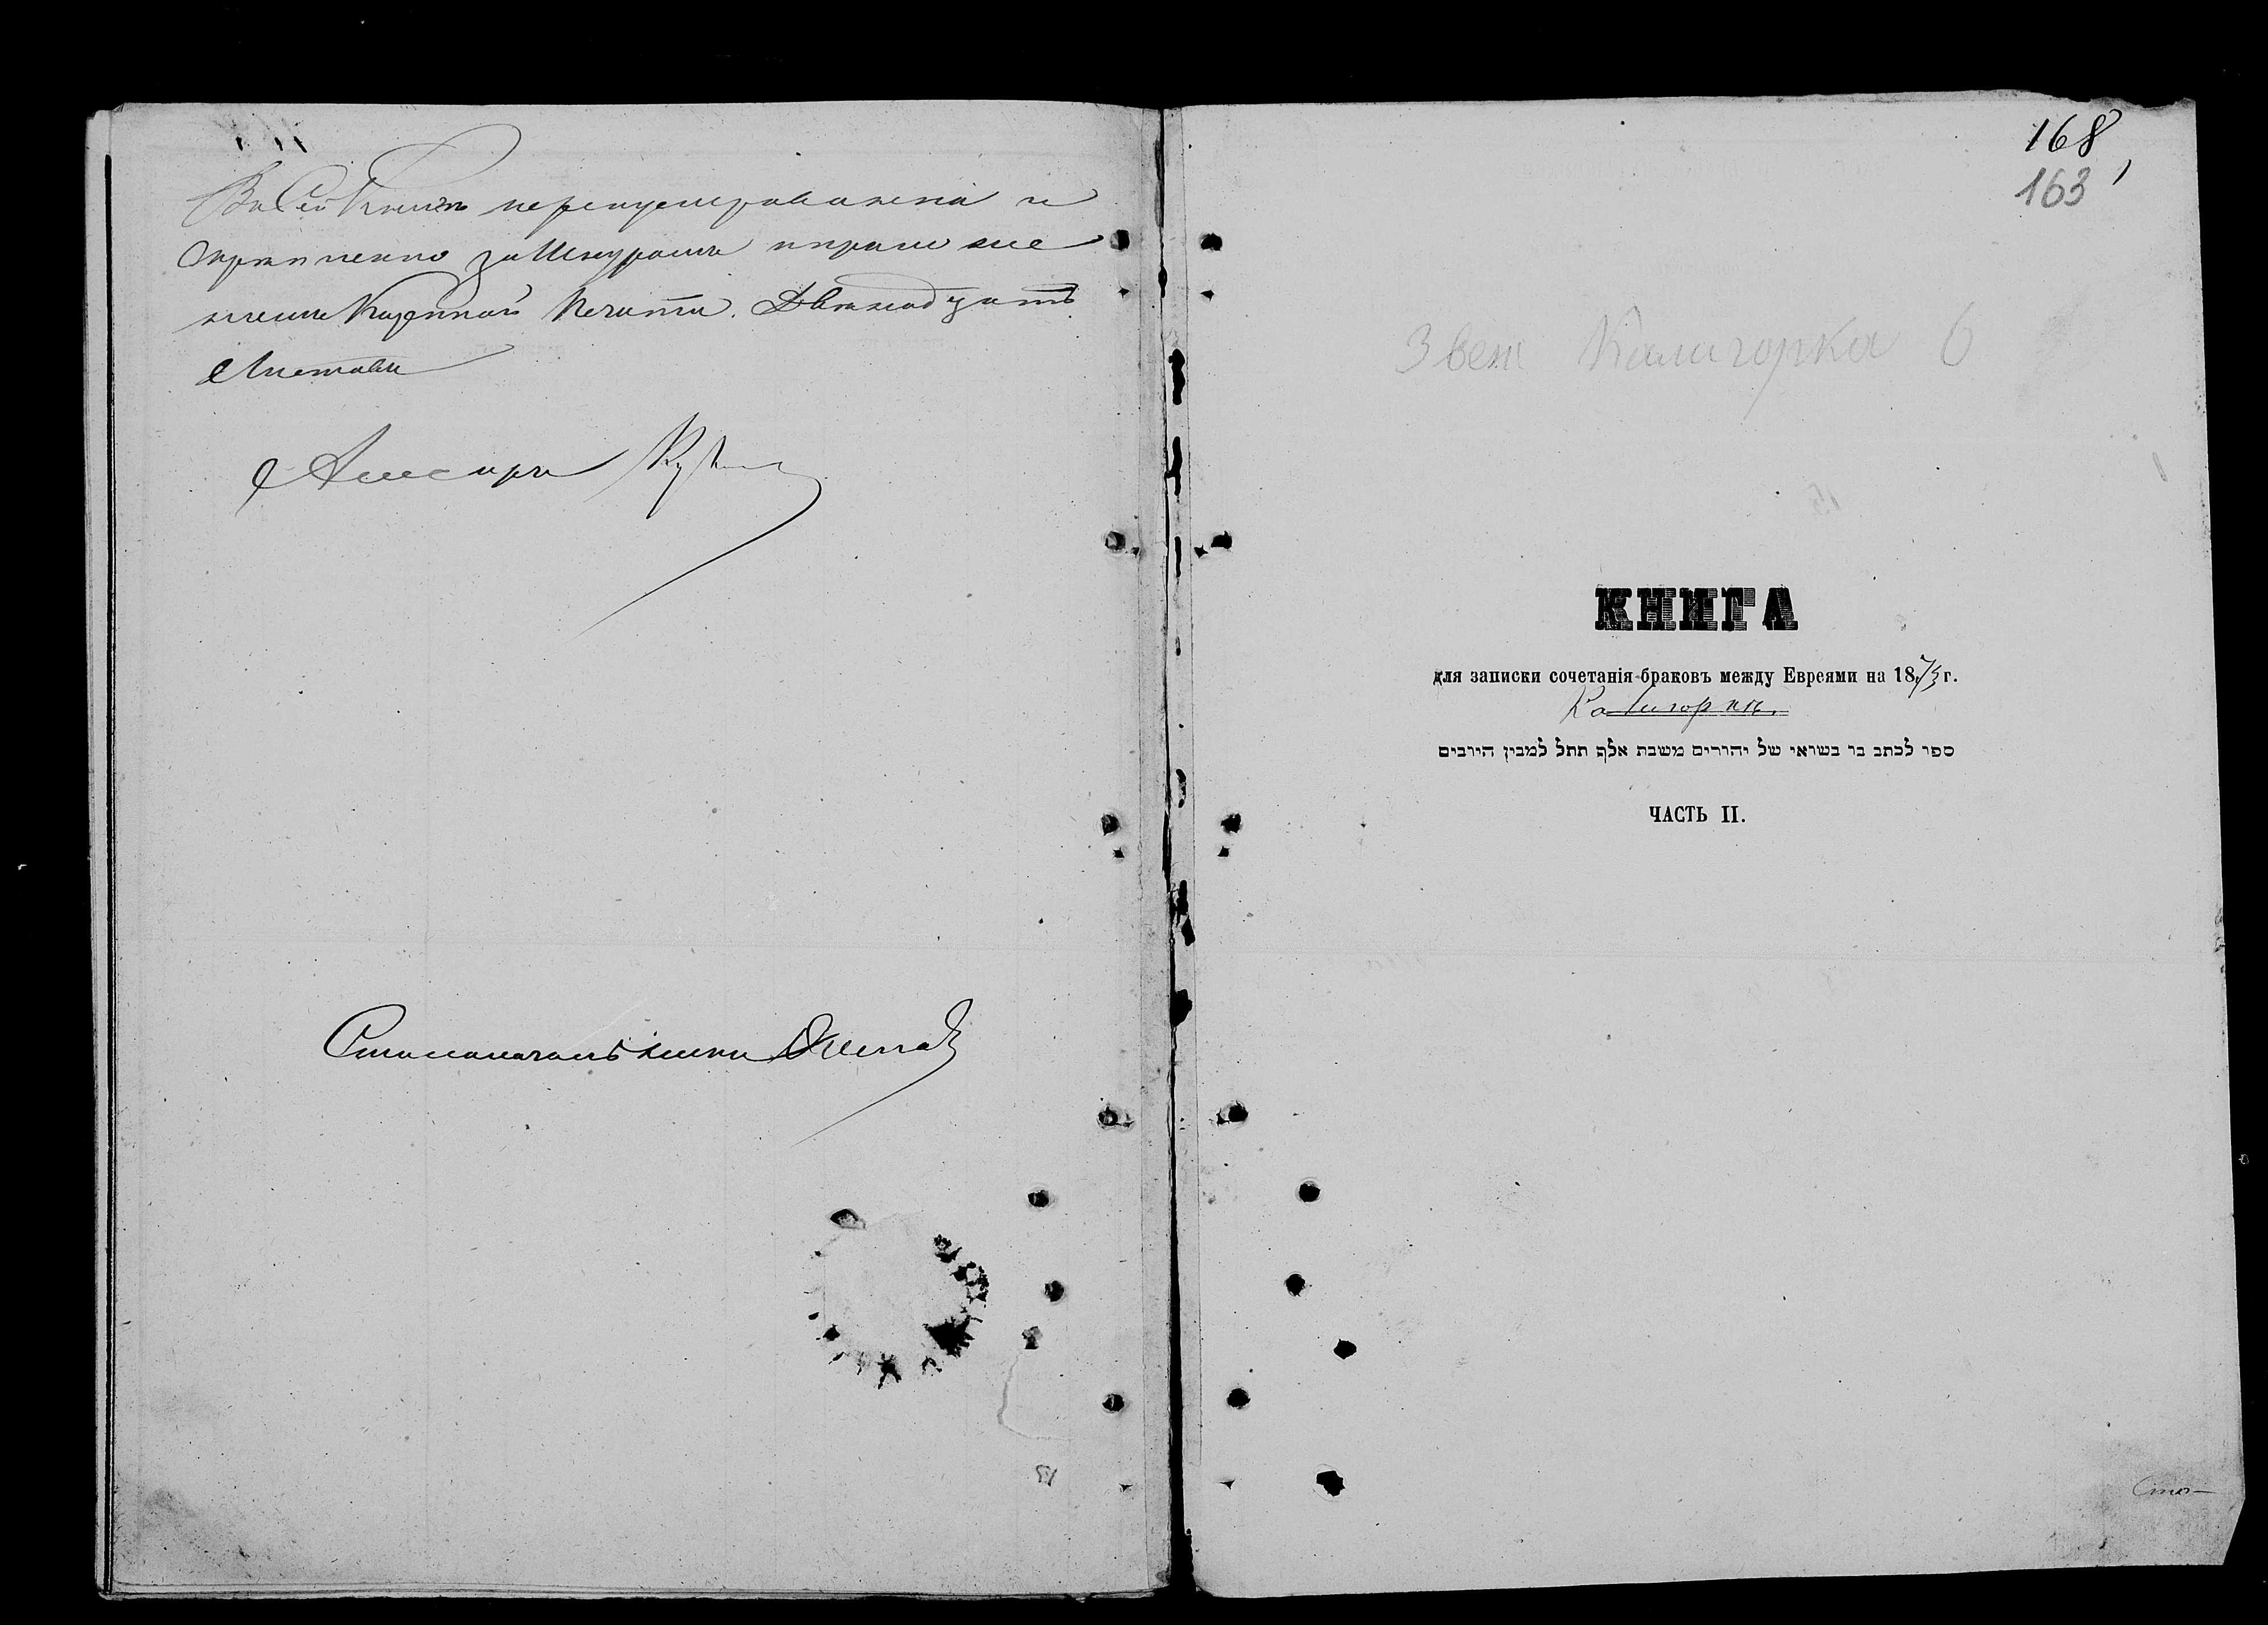 Въ Сей Книгѣ перенумерованной и
скрѣпленно за Шнуромъ и приложе
ніемъ Казенной Печати. Двѣнадцать
Листовъ
Ассесоръ
Столоначальникъ
168
163
Звен Калигорка 6
КНИГА
для записки сочетанія браковъ между Евреями на 1873 г.
Калигорки.
ספר לכתב בר בשוראי של יהודים משבת אלף תתל למבין הירבים
ЧАСТЬ II.
Сто-